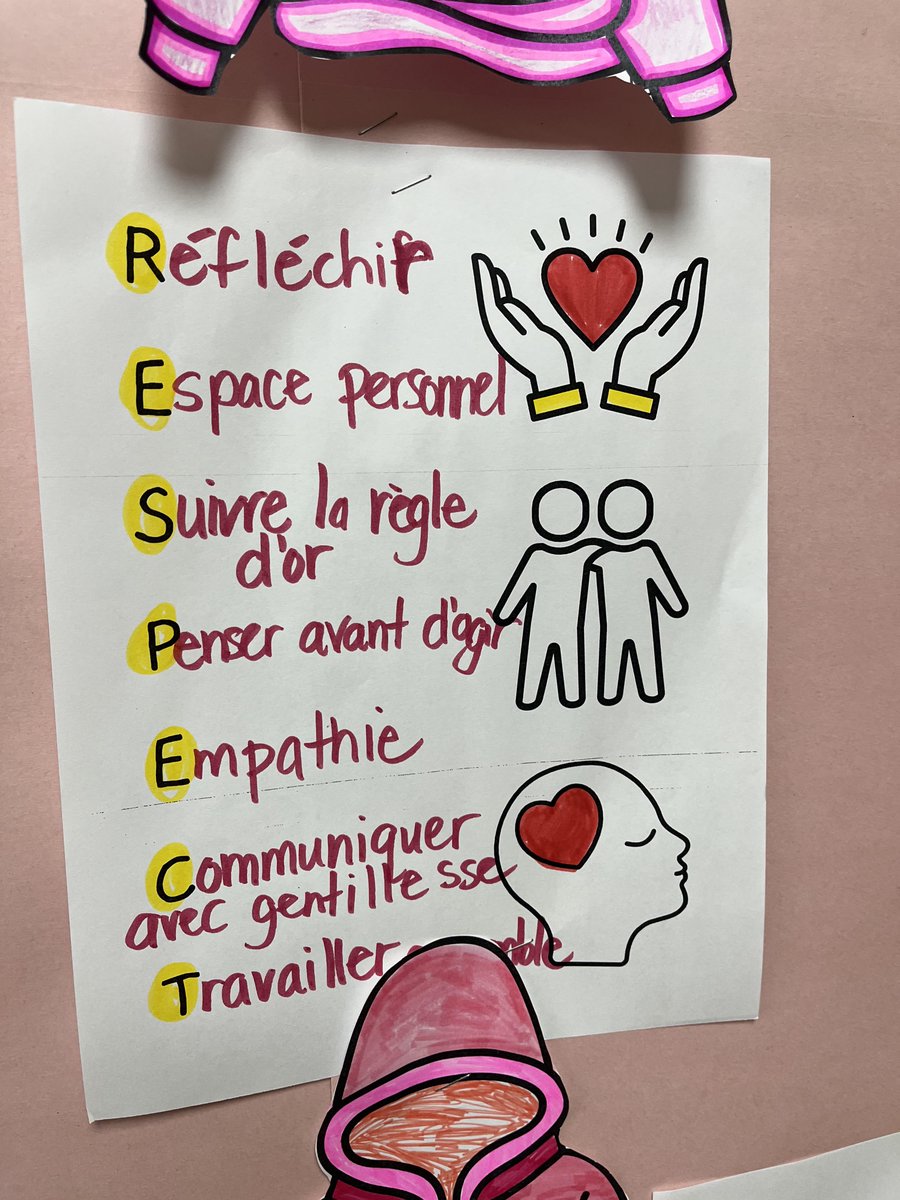 Réfléchir
Espace personnel
Suivre la règle
d'or
Penser avant d'agir
Empathie
Communiquer
avec gentillesse
Travailler